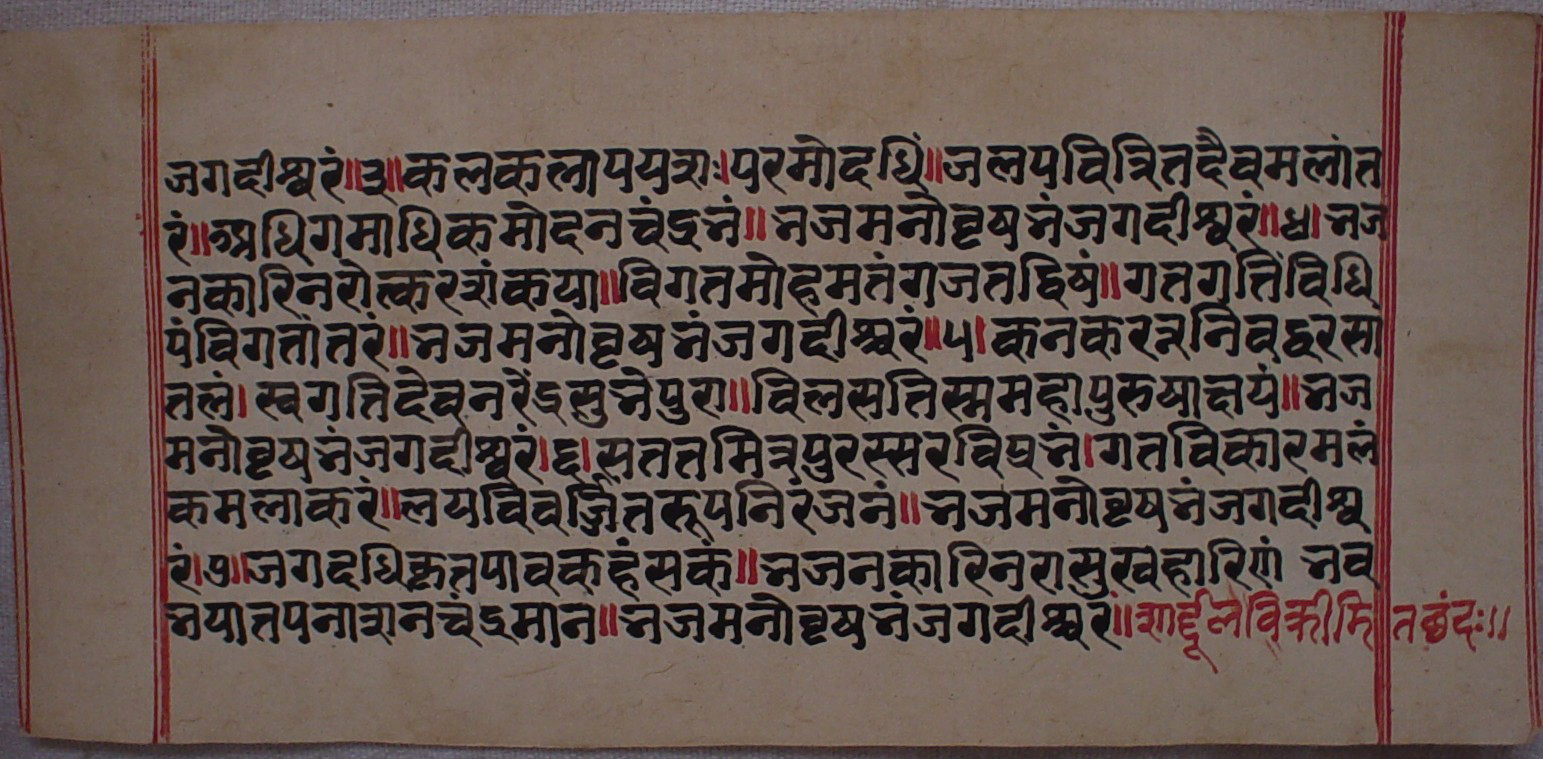 जगदीश्वरं॥३॥कलकलापयशः।परमोदधिं॥जलपवित्रितदैवमलांत
रं॥अधिगमाधिकमोदनचंद्रनं॥भजमनोवृषभंजगदीश्वरं॥४।भज
नकारिनरोत्करशंकया॥विगतमोहमतंगजतद्विषं॥गतगतिंविधि
पंविगतांतरं॥भजमनोवृषभंजगदीश्वरं॥५।कनकरत्ननिबद्धरसां
तलं।स्वगतिदेवनरेंद्रसुभेपुरा॥विलसतिस्ममहापुरुषाज्ञयं॥भज
मनोवृषभंजगदीश्वरं।६।सततमित्रपुरस्सरविप्रभं।गतविकारमलं
कमलाकरं॥लयविवर्ज्जितरूपनिरंजनं॥भजमनोवृषभंजगदीश्व
रं।७॥जगदधिकृतपावकहंसकं॥भजनकारिनरासुखहारिणं भव
भयातपनाशनचंद्रमान॥भजमनोवृषभंजगदीश्वरं॥शार्द्दूलविक्रीडितछंदः॥